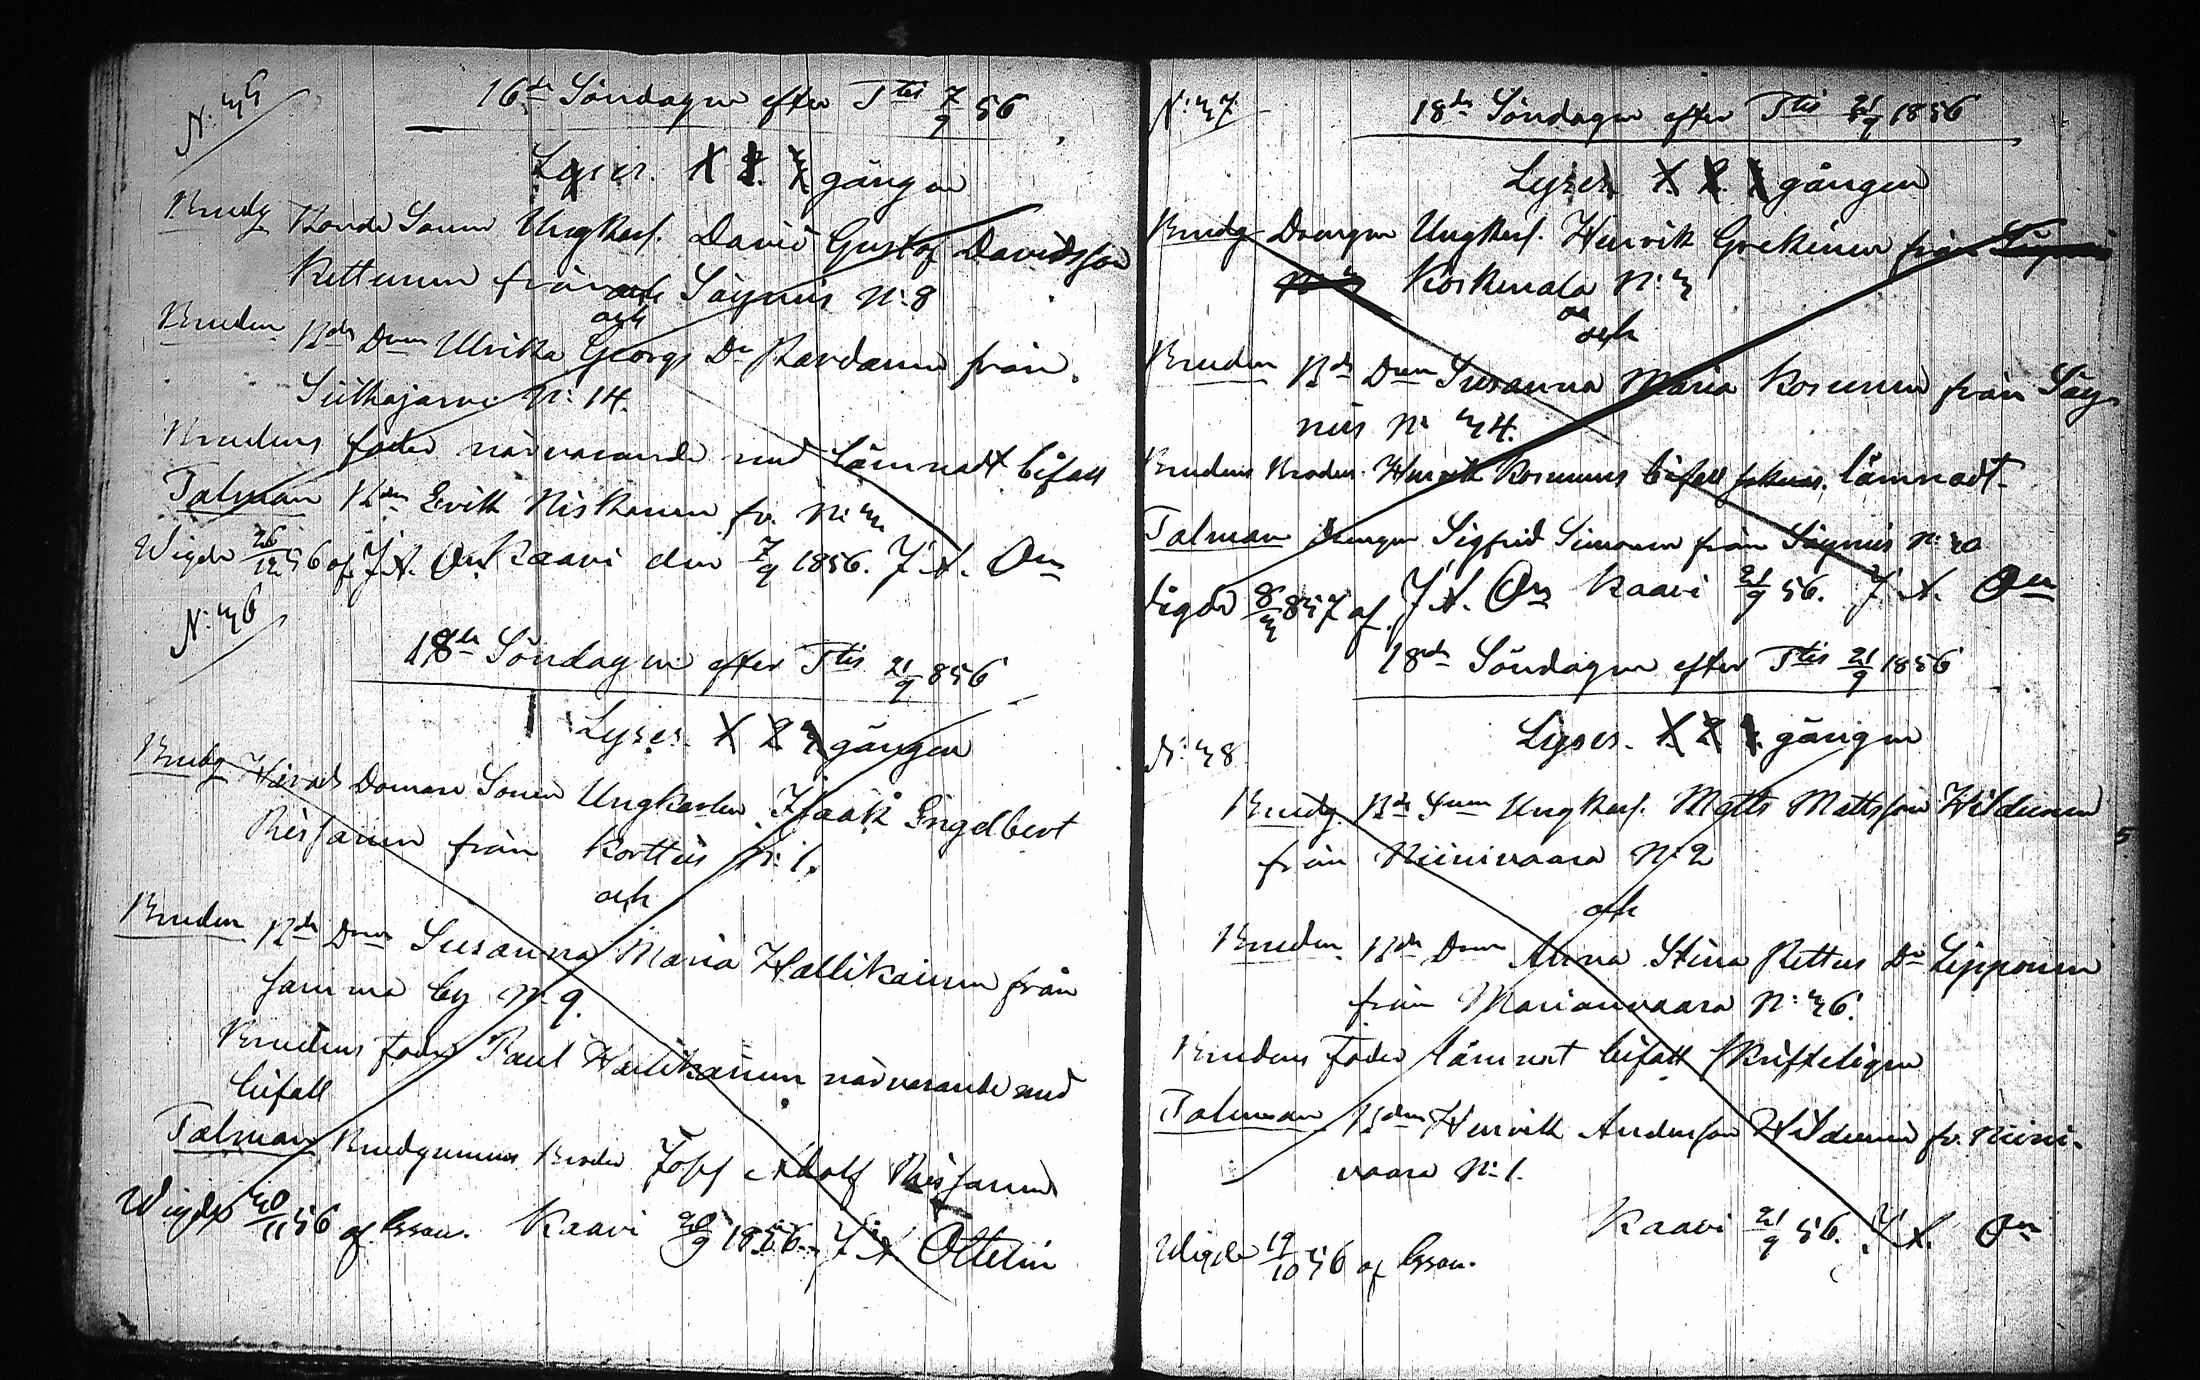 N: 35
16de Söndagen efter Ttis 7/9 56
Lyses. 1. 2. 3 gången
Brudg Bonde Sonen Ungkarl. David Gustaf Davidsson
Kettunen från Säynis N:8
och
Bruden Bde Dren Ulrika Georgs Dr Kardanen från
Siikajärvi N: 14.
Brudens fader närvarande med lämnadt bifall
Talman Bden Erik Niskanen fr. N: 3.
Wigde 26/12 56 af J. A. On Kaavi den 7/9 1856. J. A. On
N: 36
18de Söndagen efter Ttis 21/9 856
Lyses. 1 2 3 gången
Brudg Härads Domare Sonen Ungkarlen Isaak Engelbert
Rissanen från Korttis N: 1.
och
Bruden Bde Dren Susanna Maria Hallikainen från
samma by N: 9.
Brudens fader Paul Hallikainen närvarande med
bifall
Talman Brudgummens Broder Adolf Rissanen
Wigde 30/11 56 af Kaavi 20/9 1856. J. A. Ottelin
N: 37
18de Söndagen efter Ttis 21/9 1856
Lyses. 1. 2. 3 gången
Brudg Drengen Ungkarl. Henrik Grekinen från
Koskenala N: 3
och
Bruden Bde Dren Susanna Maria Kosunen från Säy-
nis N: 34.
Brudens Broder Henrik Kosunens bifall lämnadt
Talman Drengen Sigfrid Simonen från Säynis N: 20
Wigde 8/3 857 af J. A. On Kaavi 21/9 56. J. A. On
18de Söndagen efter Ttis 21/9 1856
Lyses. 1. 2. 3. gången
N: 38
Brudg. Bde Sonen Ungkarl. Matts Mattsson Hildunen
från Niinivaara N: 2
och
Bruden Bde Dren Anna Stina Petters Dr Lipponen
från Marianvaara N: 36.
Brudens Fader lämnat bifall skrifteligen
Talman Bden Henrik Andersson Hildunen fr. Niini-
vaara N: 1.
Kaavi 21/9 56. J. A. On
Wigde 19/10 56 af